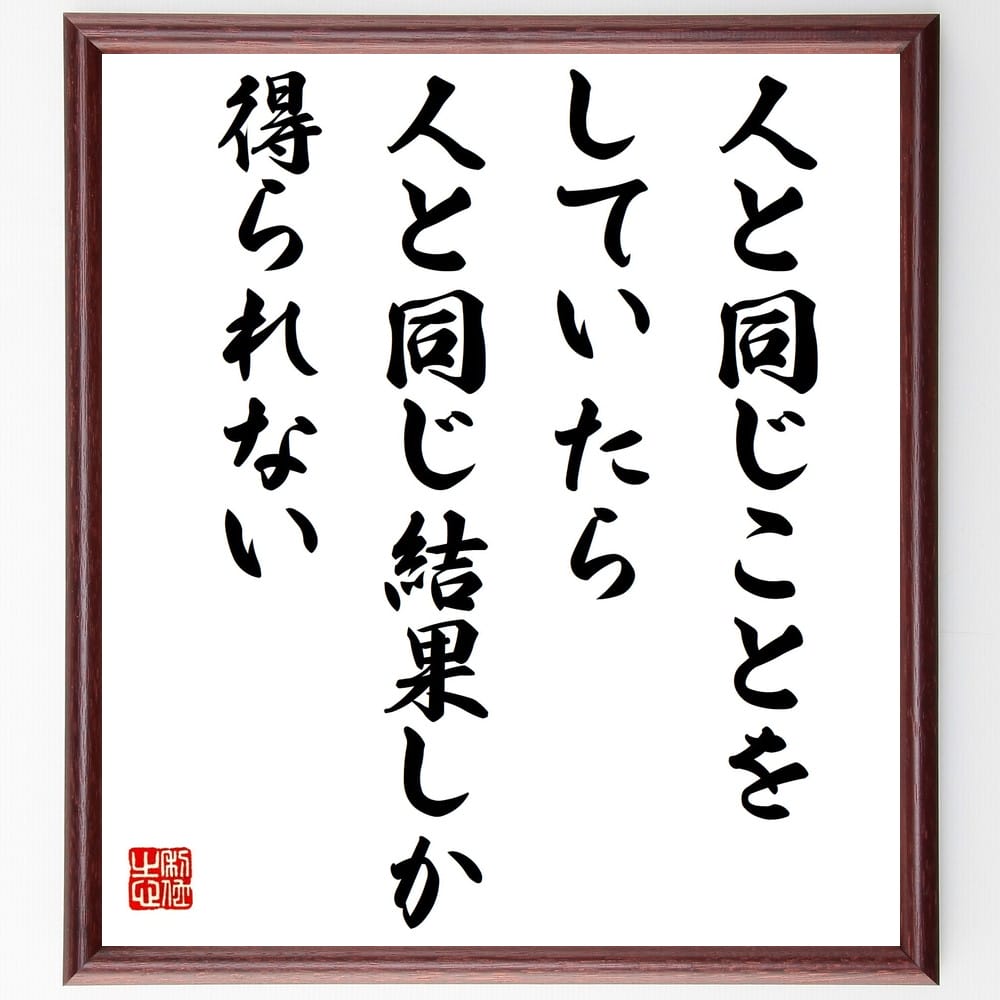 人と同じことを
していたら
人と同じ結果しか
得られない